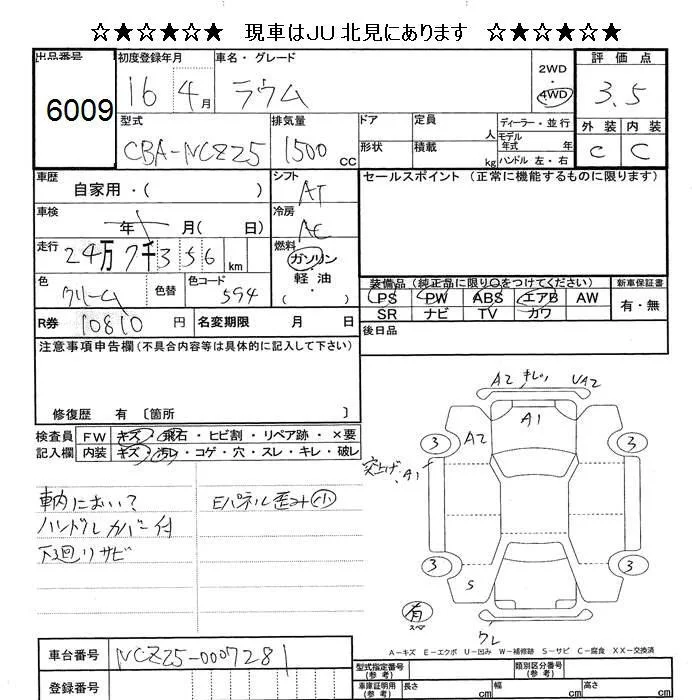 ☆★☆★☆★ 現車はJU北見にあります ☆★☆★☆★
出品番号 初度登録年月 車名・グレード 2WD 評価点
6009 16 4月 ラウム 4WD 3.5
型式 排気量 ドア 定員 人 ディーラー・並行 外装 内装
CBA-NCZ25 1500 CC 形状 積載 kg モデル年式 年 ハンドル 左・右 C C
車歴 自家用・( ) シフト AT セールスポイント (正常に機能するものに限ります)
車検 年 月( 日) 冷房 AC
走行 24万7千356 km 燃料 ガソリン
色 クリーム 色替 色コード 594 軽油 ・( )
装備品 (純正品に限り○をつけてください) 新車保証書
PS PW ABS エアB AW 有・無
SR ナビ TV カワ
R券 10810 円 名変期限 月 日 後日品
注意事項申告欄(不具合内容等は具体的に記入して下さい)
修復歴 有 〔箇所 〕
検査員 FW キズ・飛石・ヒビ割・リペア跡・×要
記入欄 内装 キズ・汚レ・コゲ・穴・スレ・キレ・破レ
車内におい? Eパネル歪み小
ハンドルカバー付
下廻りサビ
A2 キレ UA2
A1
A2
3 3
突上げ A1
3 3
S
有
スペア
ワレ
A-キズ E-エクボ U-凹み W-補修跡 S-サビ C-腐食 XX-交換済
車台番号 NCZ25-0007281
型式指定番号(参考) 類別区分番号(参考)
登録番号 車庫証明用(参考) 長さ cm 幅 cm 高さ cm